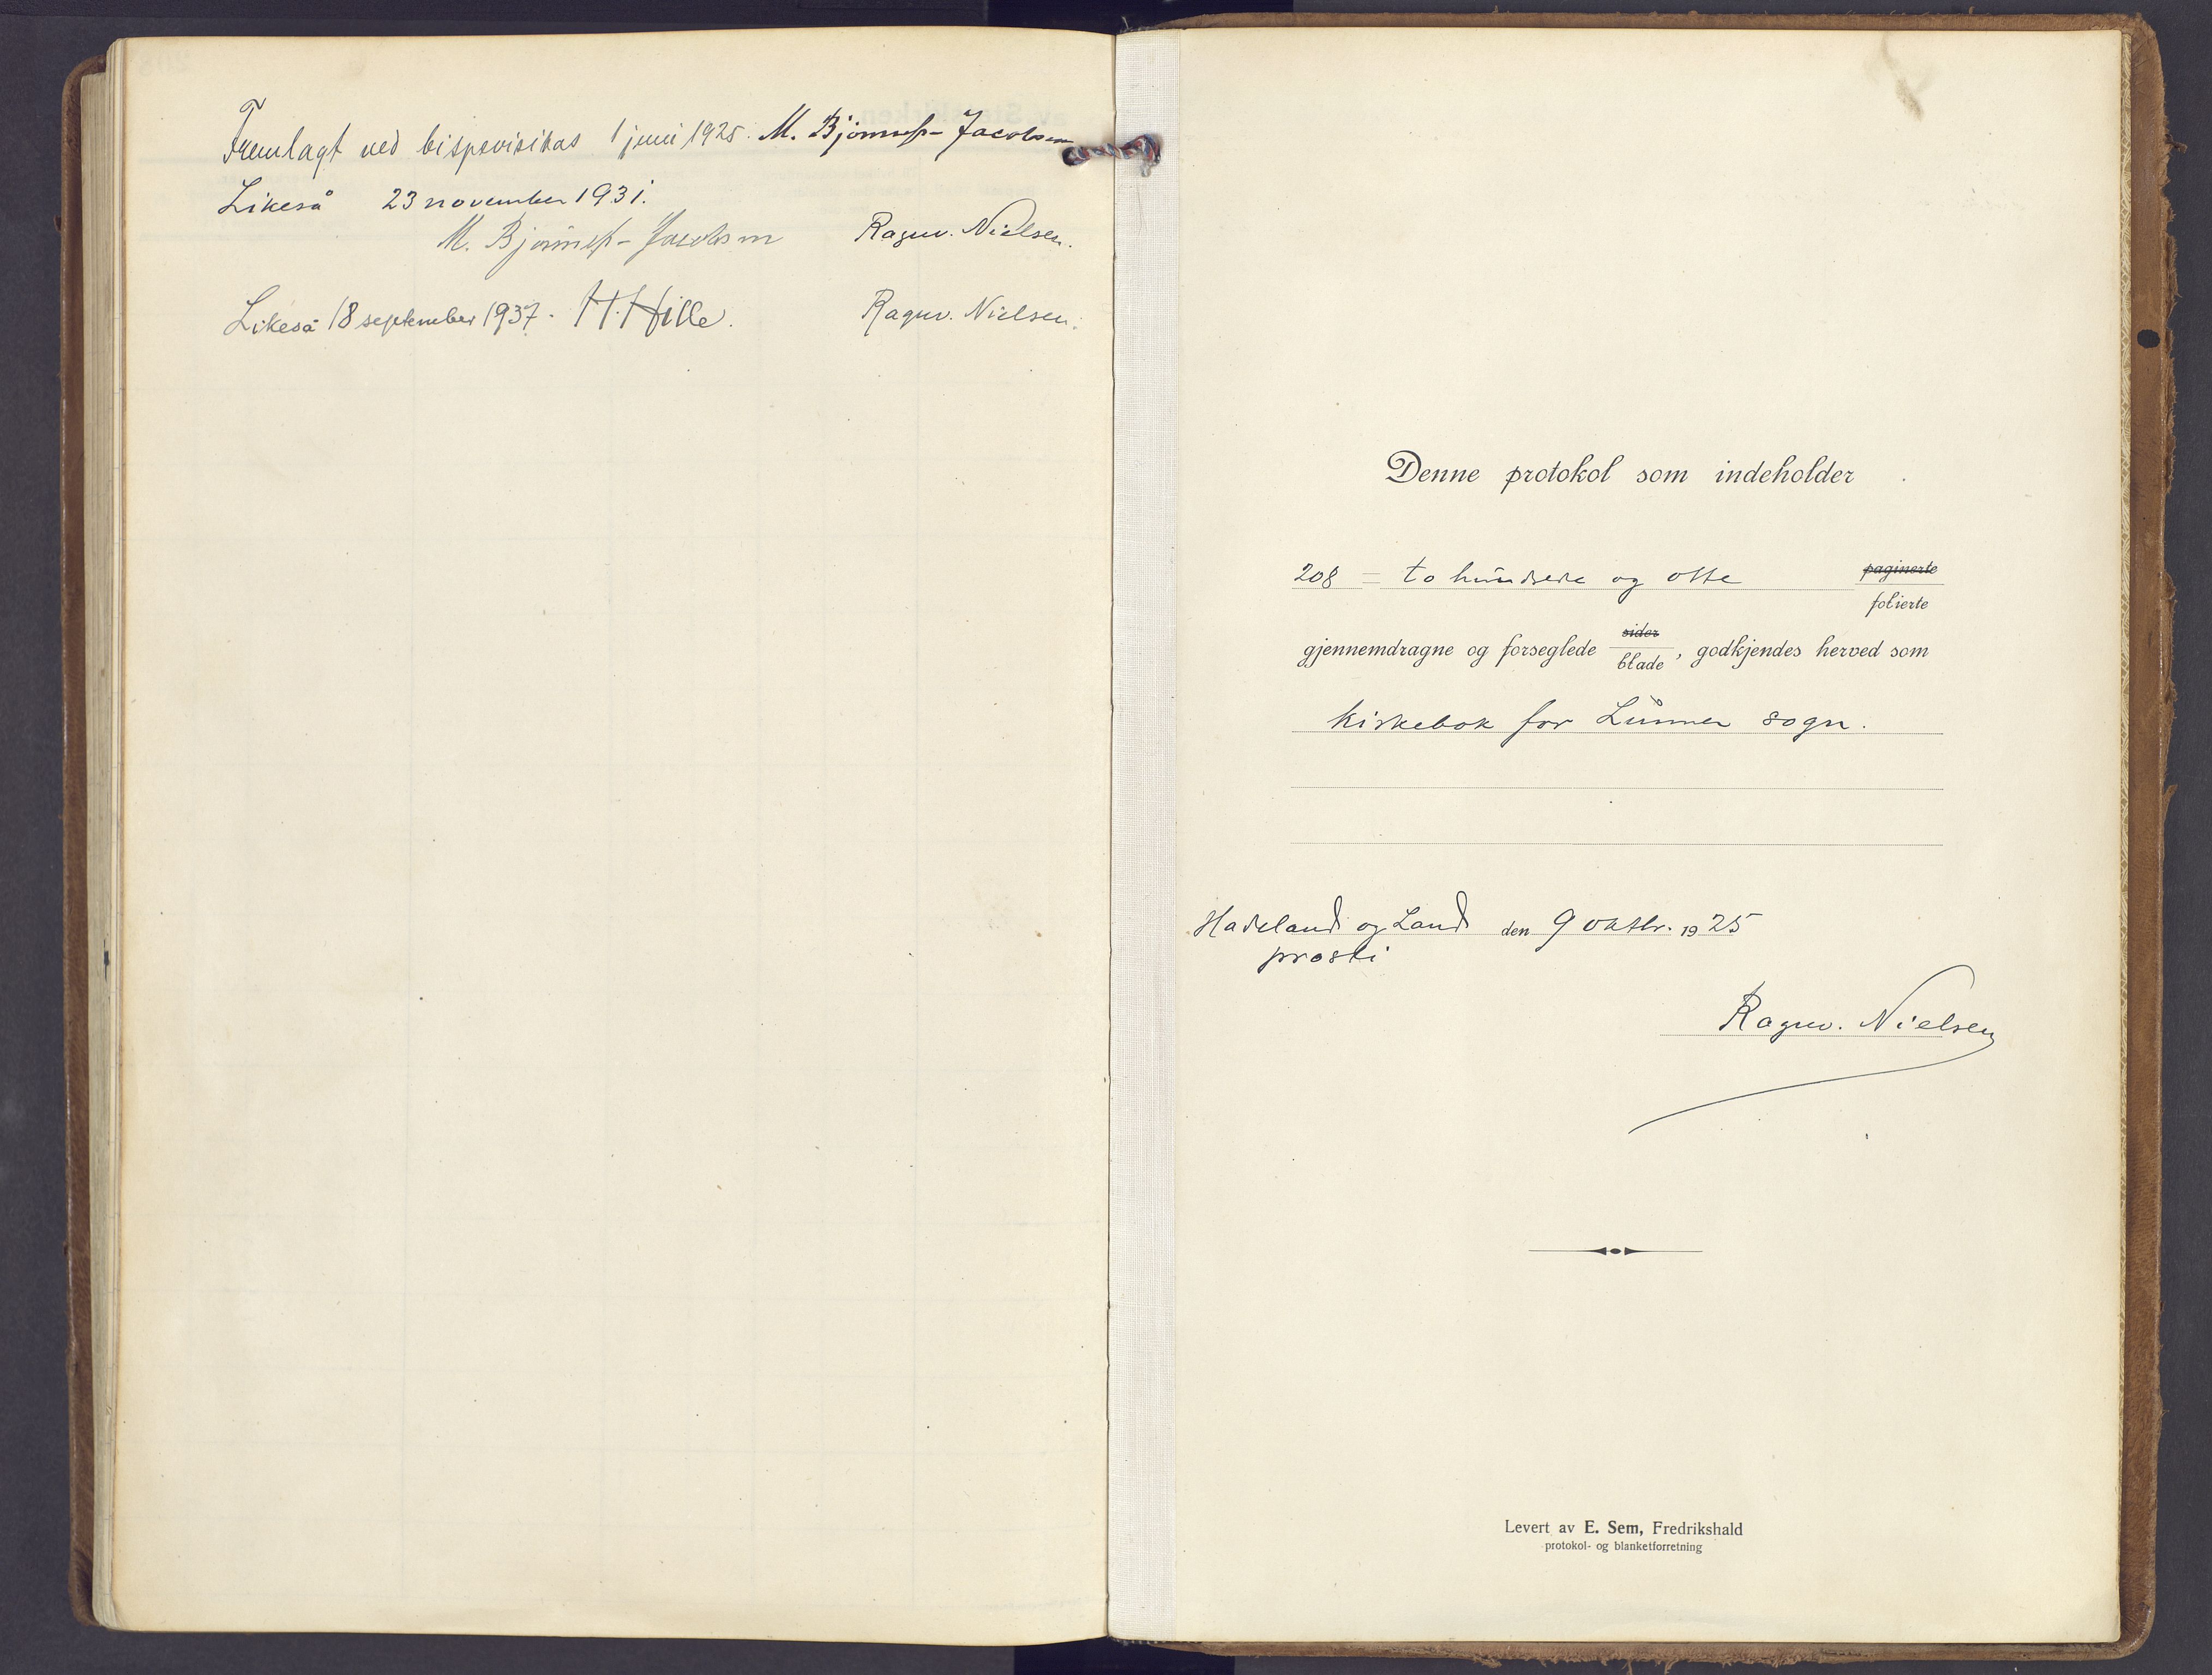 Fremlagt ved bispevisitas 1 juni 1925. M. Bjonness-Jacobsen
Likeså 23 november 1931.
M. Bjonness-Jacobsen Ragnv. Nielsen.
Likeså 18 september 1937. H. Hille. Ragnv. Nielsen.
Denne protokol som indeholder
208 = to hundrede og otte paginerte
folierte
sider
gjennemdragne og forseglede blade, godkjendes herved som
kirkebok for Lunner sogn.
Hadeland og Land den 9 oktbr. 1925
prosti
Ragnv. Nielsen
Levert av E. Sem, Fredrikshald
protokol- og blanketforretning